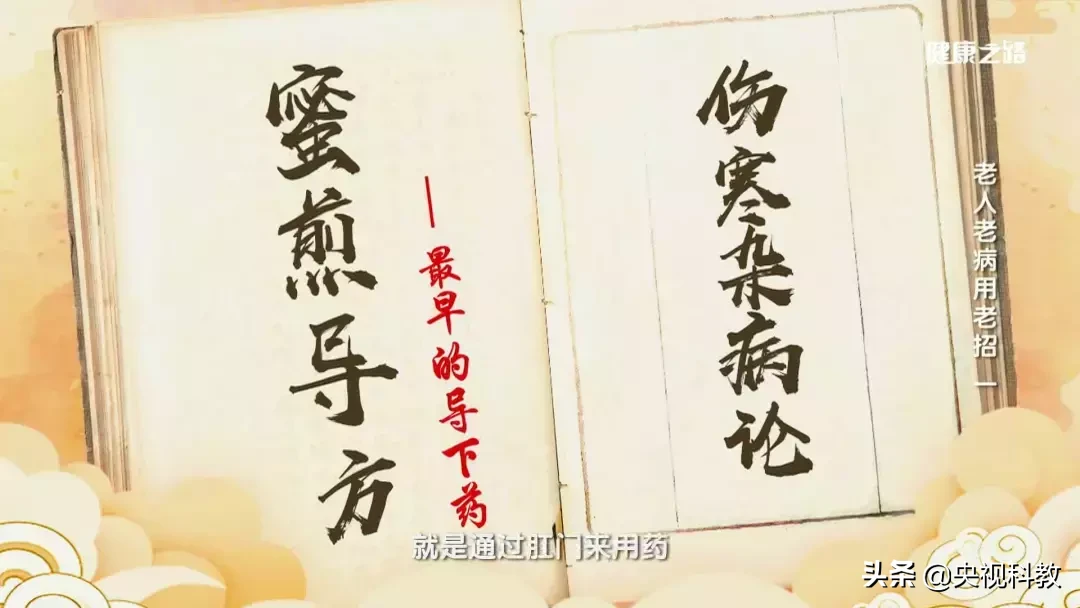 健康之路
伤寒杂病论
蜜煎导方
—最早的导下药
老人老病用老招 一
就是通过肛门来用药
头条 @央视科教